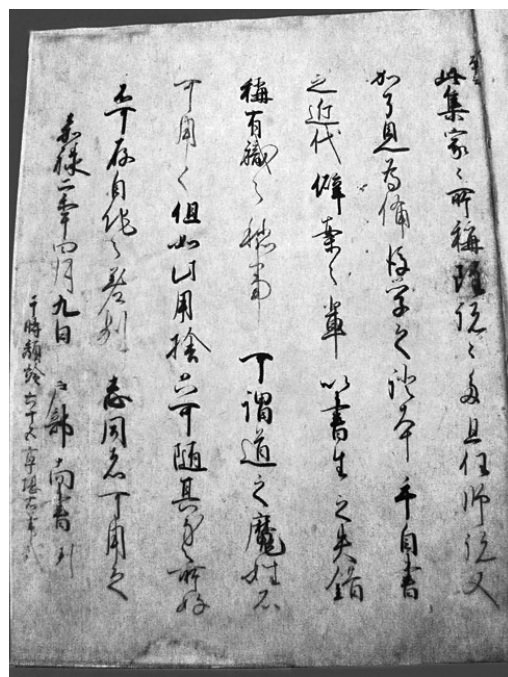 此集家々所稱雖説々多且任師説又
加了見為備後学之證本手自書
之近代僻案之輩以書生之失錯
稱有職之秘事可謂道之魔姓不
可用之但如此用捨只可随其身之所好
不可存自他之差別志同者可用之
嘉禄二年四月九日戸部尚書判
于時頽齢六十五寧堪右筆哉